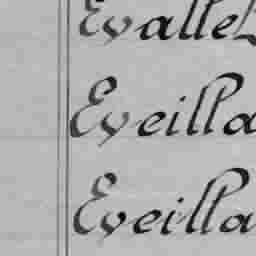 Evalle
Eveilla
Eveilla